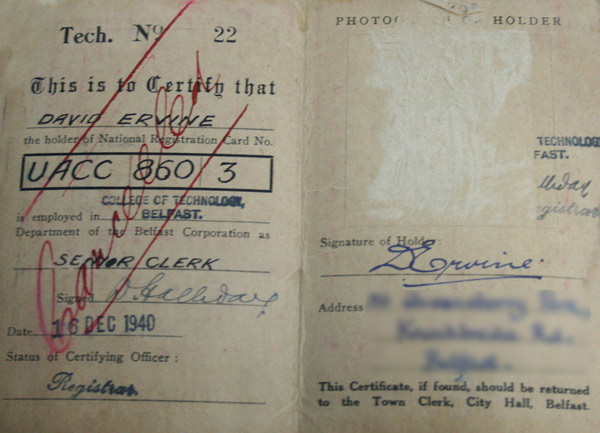 Tech. No 22
This is to Certify that
DAVID ERVINE
the holder of National Registration Card No.
UACC 860 3
COLLEGE OF TECHNOLOGY,
is employed in BELFAST.
Department of the Belfast Corporation as
SENIOR CLERK
Signed D Halliday
Date 16 DEC 1940
Status of Certifying Officer :
Registrar
Cancelled
PHOTOG HOLDER
TECHNOLOGY
FAST.
lliday
gistrar
Signature of Holder:
DErvine.
Address
Belfast.
This Certificate, if found, should be returned
to the Town Clerk, City Hall, Belfast.